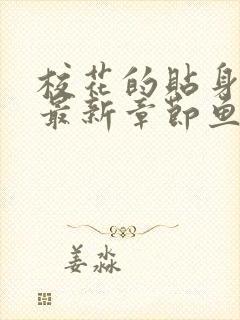 校花的贴身
最新章节鱼
姜淼